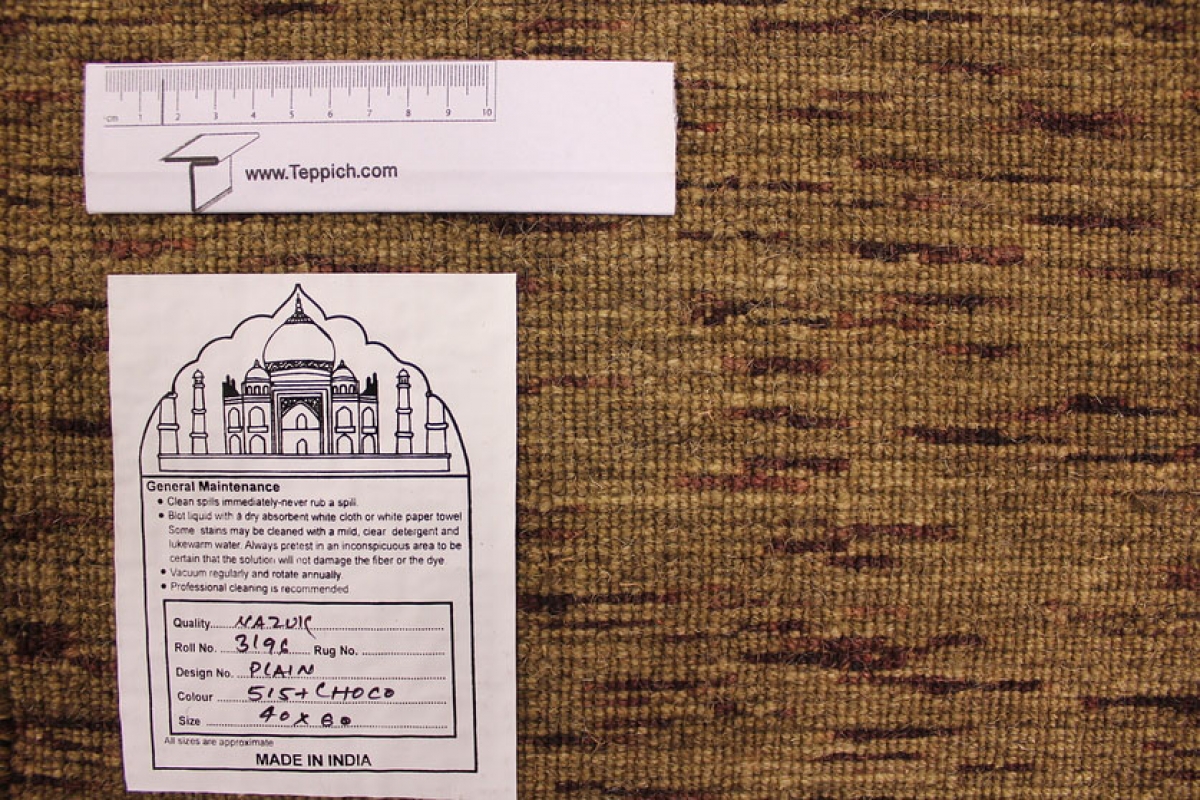 cm 1 2 3 4 5 6 7 8 9 10
www.Teppich.com
General Maintenance
• Clean spills immediately-never rub a spill.
• Blot liquid with a dry absorbent white cloth or white paper towel
Some stains may be cleaned with a mild, clear detergent and
lukewarm water. Always pretest in an inconspicuous area to be
certain that the solution will not damage the fiber or the dye.
• Vacuum regularly and rotate annually.
• Professional cleaning is recommended
Quality.... NAZUK
Roll No. .. 3196 .... Rug No. ....................
Design No. ... PLAIN
Colour ........ 515+CHOCO
Size ............ 40 x 80
All sizes are approximate
MADE IN INDIA